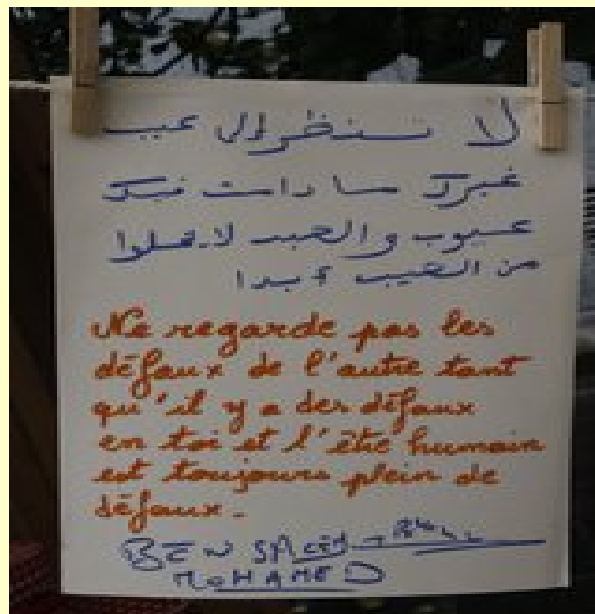 لا تنظر إلى عيب
غيرك ما دامت فيك
عيوب والعبد لا يخلوا
من العيب أبدا
Ne regarde pas les
défaux de l'autre tant
qu'il y a des défaux
en toi et l'être humain
est toujours plein de
défaux.
BEN
MOHAMED